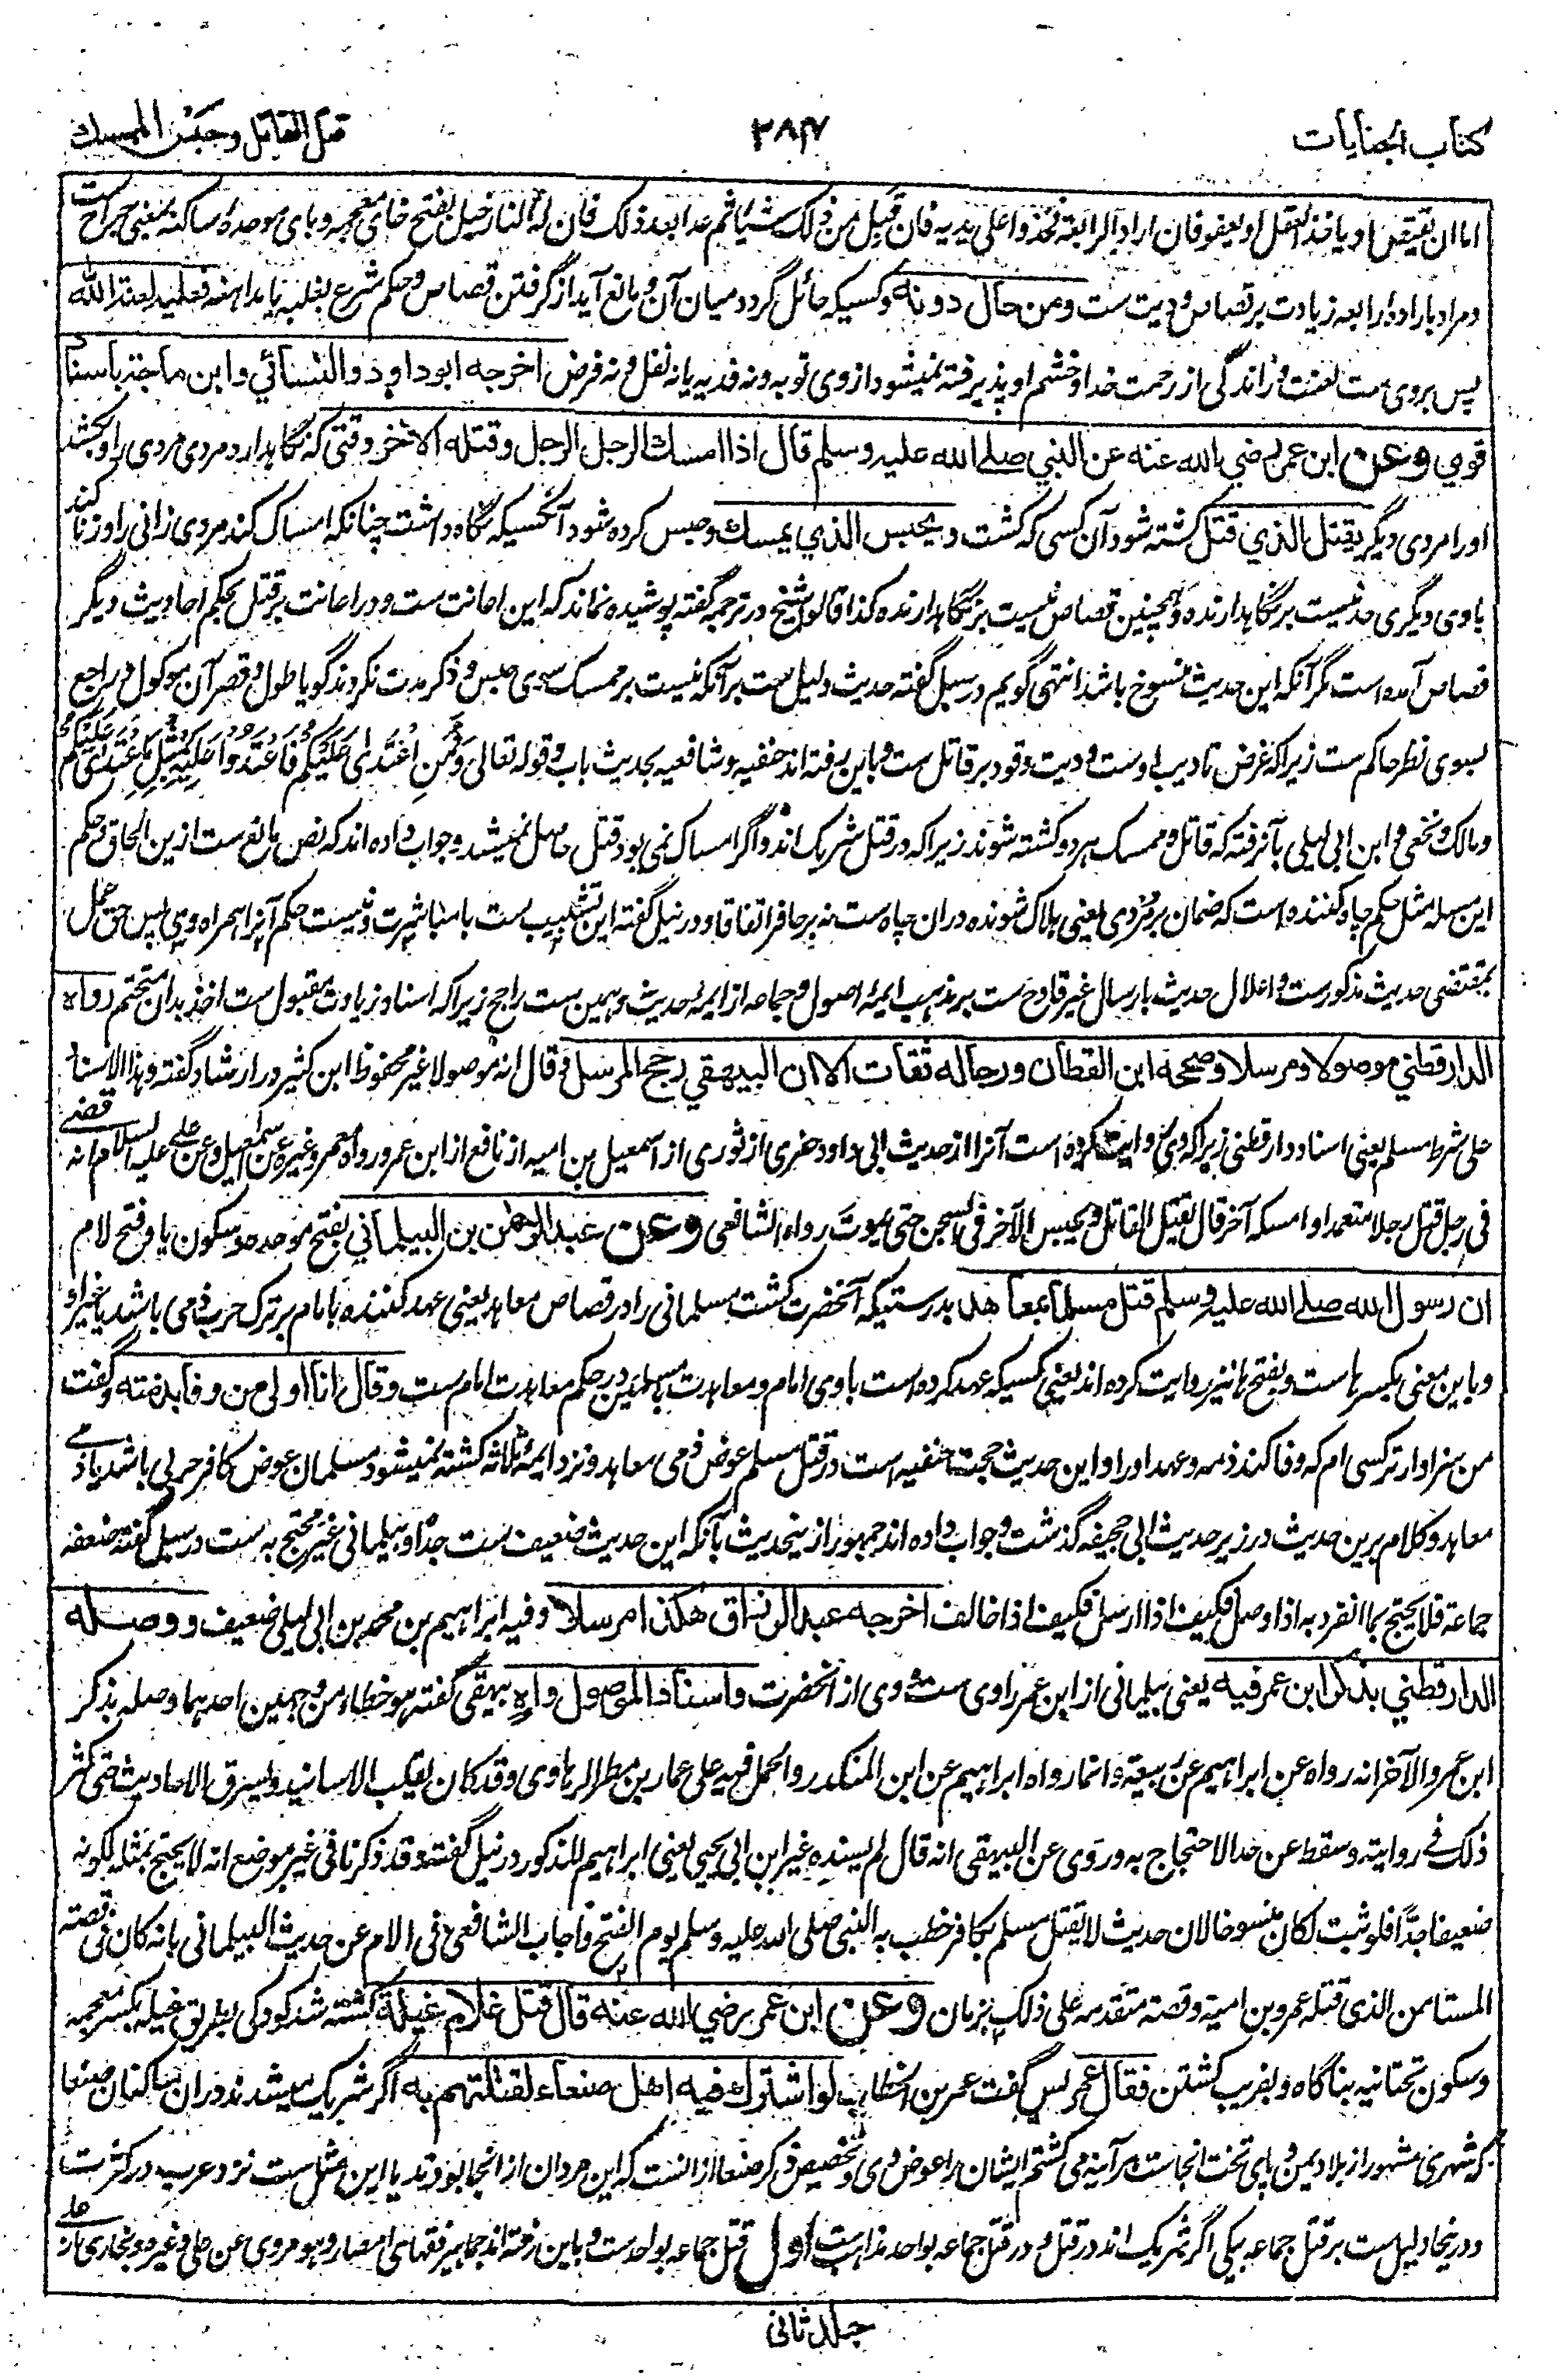 کتاب الجنایات
۲۸۷
قتل القاتل وحبس الممسك
اما ان یقتص او یاخذ العقل او یعفو فان اراد الرابعة فخذوا علی یدیه فان قبل من ذلک شیئا ثم عدا بعد ذلک فان له النار خبل بفتح خای معجمه و بای موحده ساکنه بمعنی جراحت
و مراد باراده رابعه زیادت بر قصاص و دیت ست ومن حال دونه و کسیکه حائل گردد میان آن و مانع آید از گرفتن قصاص و حکم شرع بغلبه یا بداهنه فعلیه لعنة الله
پس بر وی ست لعنت و راندگی از رحمت خدا و خشم او پذیرفته نمیشود از وی توبه و نه فدیه یا نه نفل و نه فرض اخرجه ابو داود والنسائي وابن ماجة باسناد
قوي وعن ابن عمر رضي الله عنه عن النبي صلے الله علیه وسلم قال اذا امسك الرجل الرجل وقتله الاخر وقتی که نگاهدارد مردی مردی را و بکشد
اورا مردی دیگر یقتل الذي قتل کشته شود آن کسی که کشت ویحبس الذي یمسك و حبس کرده شود آنکسیکه نگاه داشت چنانکه امساک کند مردی زانی را و زنا کند
با وی دیگری حد نیست بر نگاهدارنده و همچنین قصاص نیست بر نگاهدارنده کذا قالوا شیخ در ترجمه گفته پوشیده نماند که این اعانت ست و در اعانت بر قتل بحکم احادیث دیگر
قصاص آمده است مگر آنکه این حدیث منسوخ باشد انتهی گویم در سبل گفته حدیث دلیل ست بر آنکه نیست بر ممسک سوی حبس و ذکر مدت نکردند گویا طول و قصر آن موکول و راجع
بسوی نظر حاکم ست زیراکه غرض تادیب اوست و دیت و قود بر قاتل ست و باین رفته اند حنفیه و شافعیه بحدیث باب و قوله تعالی فَمَنِ اعْتَدٰی عَلَیْکُمْ فَاعْتَدُوْا عَلَیْهِ بِمِثْلِ مَا اعْتَدٰی عَلَیْکُمْ
و مالک و نخعی و ابن ابی لیلی بآن رفته که قاتل و ممسک هر دو کشته شوند زیراکه در قتل شریک اند و اگر امساک نمی بود قتل حاصل نمیشد و جواب داده اند که نص مانع ست ازین الحاق و حکم
این مسله مثل حکم چاه کننده است که ضمان بر مُردی یعنی هلاک شونده دران چاه ست نه بر حافر اتفاقا و در نیل گفته این تسبیب ست با مباشرت و نیست حکم آنرا همراه وی پس حق عمل
بمقتضی حدیث مذکورست و اعلال حدیث بارسال غیر قادح ست بر مذهب ایمهٔ اصول و جماعه از ایمه حدیث و همین ست راجح زیراکه اسناد زیادت مقبول ست اخذ بدان متحتم رواه
الدارقطني موصولا ومرسلا وصححه ابن القطان ورجاله ثقات الا ان البیهقي رجح المرسل و قال انه موصولا غیر محفوظ ابن کثیر در ارشاد گفته و هذا الاسناد
علی شرط مسلم یعنی اسناد دارقطنی زیراکه وی روایت کرده است آنرا از حدیث ابی داود حفری از ثوری از اسمعیل بن امیه از نافع از ابن عمر و رواه معمر و غیره عن اسمعیل و عن علی علیه السلام انه قضی
فی رجل قتل رجلا متعمدا و امسکه آخر قال یقتل القاتل و یحبس الآخر فی السجن حتی یموت رواه الشافعی وعن عبد الرحمن بن البیلماني بفتح موحده و سکون یا و فتح لام
ان رسول الله صلے الله علیه وسلم قتل مسلما بمعاهد بدرستیکه آنحضرت کشت مسلمانی را در قصاص معاهد یعنی عهد کننده با امام بر ترک حرب ذمی باشد یا غیر او
و باین معنی بکسر هاست و بفتح ها نیز روایت کرده اند یعنی کسیکه عهد کرده ست با وی امام و معاهدت مسلمین در حکم معاهدت امام ست وقال انا اولی من وفا بذمته و گفت
من سزاوار ترکسی ام که وفا کند ذمه و عهد اورا و این حدیث حجت حنفیه است در قتل مسلم عوض ذمی معاهد و نزد ایمهٔ ثلاثه کشته نمیشود مسلمان عوض کافر حربی باشد یا ذمی
معاهد و کلام برین حدیث در زیر حدیث ابی جحیفه گذشت و جواب داده اند جمهور ازینحدیث بآنکه این حدیث ضعیف ست جدًا و بیلمانی غیر محتج به ست در سبل گفته ضعفه
جماعة فلا یحتج بما انفرد به اذا وصل فکیف اذا ارسل فکیف اذا خالف اخرجه عبد الرزاق هکذا مرسلا و فیه ابراهیم بن محمد بن ابی لیلی ضعیف ووصله
الدارقطني بذکر ابن عمر فیه یعنی بیلمانی از ابن عمر راوی ست و وی از آنحضرت واسناد الموصول واهٍ بیهقی گفته هو خطاء من وجهین احدهما وصله بذکر
ابن عمر والآخر انه رواه عن ابراهیم عن ربیعة و انما رواه ابراهیم عن ابن المنکدر والحمل فیه علی عمار بن مطر الرهاوی و قد کان یقلب الاسانید و یسرق الاحادیث حتی کثر
ذلک فے روایته و سقط عن حد الاحتجاج به و روی عن البیهقی انه قال لم یسنده غیر ابن ابی یحیی یعنی ابراهیم المذکور در نیل گفته و قد ذکرنا فی غیر موضع انه لا یحتج بمثله لکونه
ضعیفا جدًا فلو ثبت لکان منسوخا لان حدیث لا یقتل مسلم بکافر خطب به النبی صلی الله علیه وسلم یوم الفتح و اجاب الشافعی فی الام عن حدیث البیلمانی بانه کان فی قصة
المستامن الذی قتله عمرو بن امیة و قصته متقدمه علی ذلک بزمان وعن ابن عمر رضي الله عنه قال قتل غلام غیلة کشته شد کودکی بطریق غیله بکسر معجمه
و سکون تحتانیه بناگاه و بفریب کشتن فقال عمر پس گفت عمر بن الخطاب لو اشترك فیه اهل صنعاء لقتلتهم به اگر شریک میشدند دران ساکنان صنعا
که شهری مشهور از بلاد یمن و پای تخت آنجاست هر آینه می کشتم ایشان را عوض وی و تخصیص ذکر صنعا از انست که این مردان از آنجا بودند یا این مثل ست نزد عرب در کثرت
و درینجا دلیل ست بر قتل جماعه بیکی اگر شریک اند در قتل و در قتل جماعه بواحد مذاهب ست اول قتل جماعه بواحد ست و باین رفته اند جماهیر فقهای امصار و هو مروی عن علی و غیره و بخاری از علی
جلد ثانی